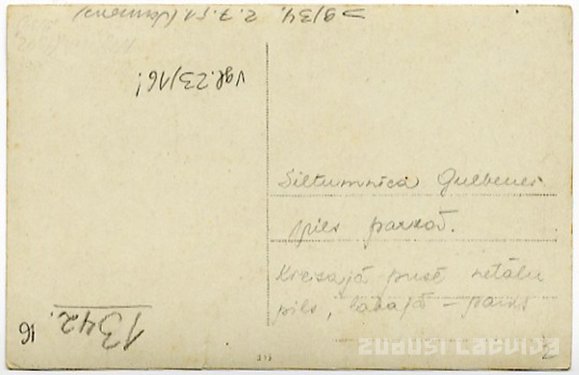 Siltumnīca Gulbenes
pils parkā.
Kreisajā pusē netālu
pils, labajā – parks
vgl. 23/16!
9/34. 2.7.51
1342.
16
ZUDUSĪ LATVIJA